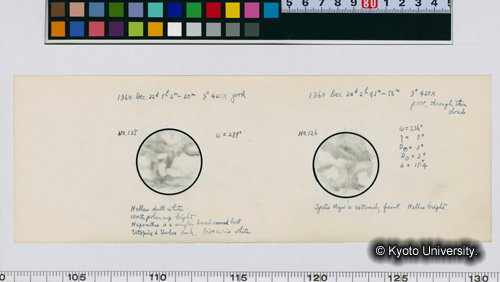 5 6 7 8 9 80 1 2 3 4 5
1960 Dec. 22d 5h 2m–20m 3" 420X good
No. 125
ω = 288°
Hellas dull white.
North polar cap bright.
Neponthes is a single broad curved belt
Utopia & Umbra dark,
white
1960 Dec 24d 2h 45m–58m 3" 420X
poor, through thin clouds
No. 126
ω = 236°
η = 7°
D⊕ = 3°
Syrtis Major is extremely faint. Hellas bright.
© Kyoto University.
0 105 110 115 120 125 130